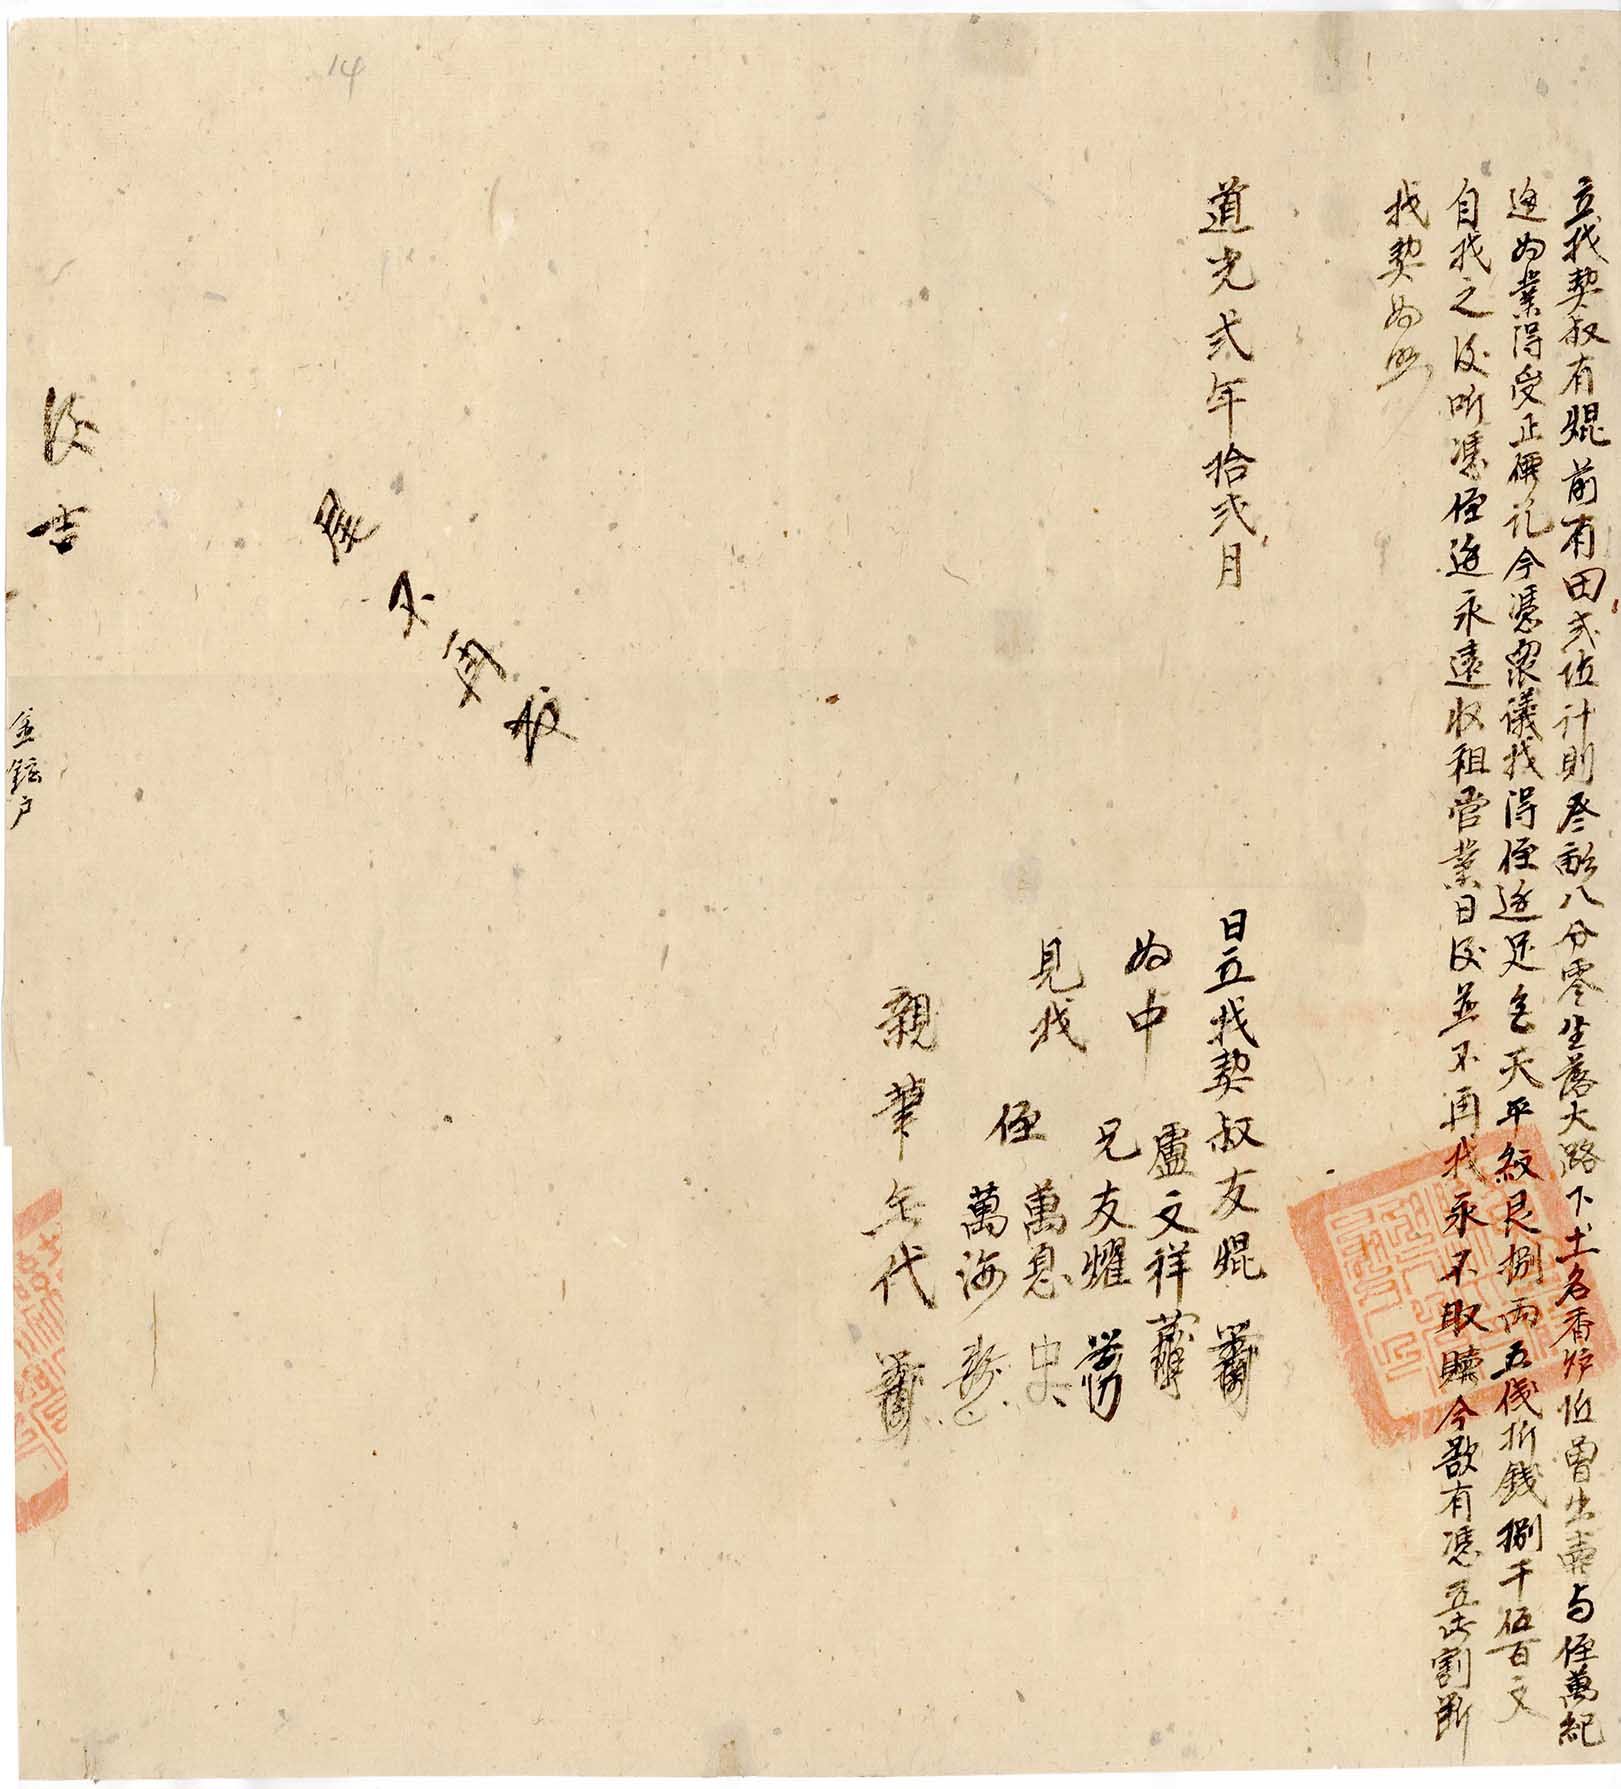 立找契叔有焜前有田弍坵計則叄畝八分零坐落大路下土名香炉坵曾出賣与侄萬紀
邊為業得受正價訖今憑衆議找得侄邊足色天平紋艮捌両五伐折錢捌千伍百文
自找之後听憑侄邊永遠收租管業日後並不再找永不取贖今欲有憑立此割断
找契為照
道光弍年拾弍月 日立找契叔友焜
為中 盧文祥
兄友耀
見找 侄 萬息
萬海
親筆無代
後吉
14